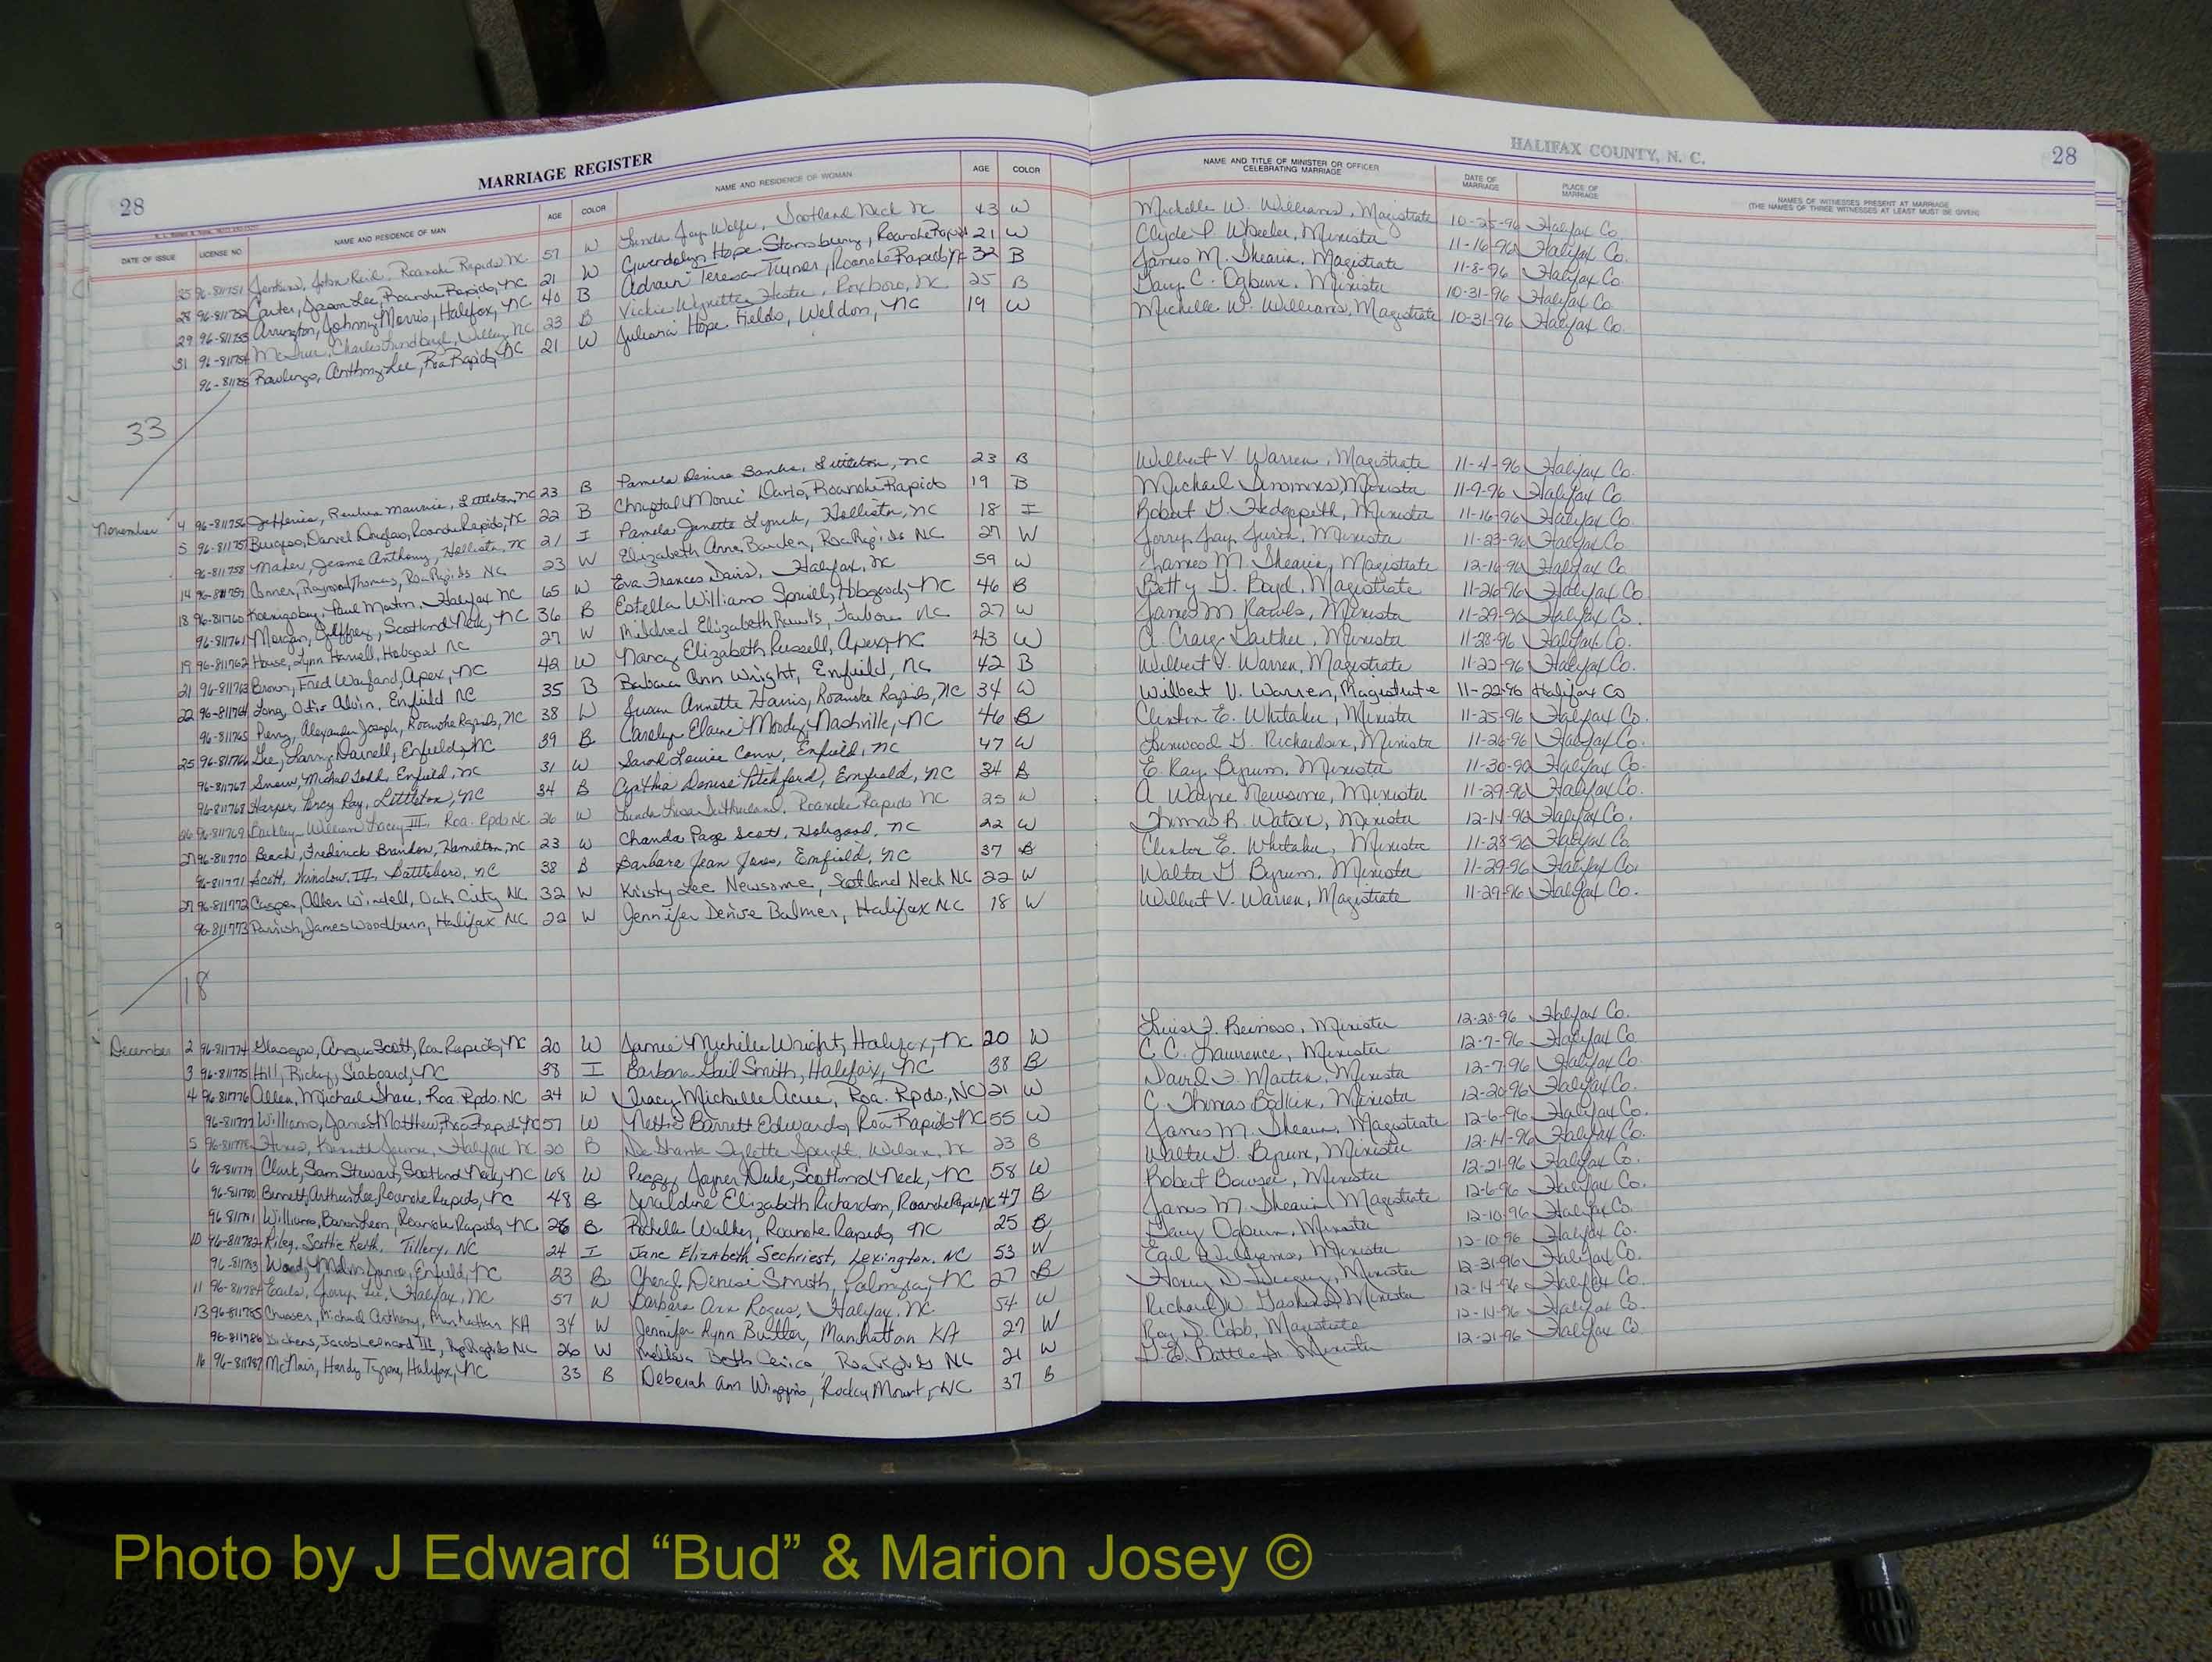 28 MARRIAGE REGISTER HALIFAX COUNTY, N. C. 28
DATE OF ISSUE LICENSE NO. NAME AND RESIDENCE OF MAN AGE COLOR NAME AND RESIDENCE OF WOMAN AGE COLOR NAME AND TITLE OF MINISTER OR OFFICER CELEBRATING MARRIAGE DATE OF MARRIAGE PLACE OF MARRIAGE NAMES OF WITNESSES PRESENT AT MARRIAGE (THE NAMES OF THREE WITNESSES AT LEAST MUST BE GIVEN)
25 96-811751 Jenkins, John Reid Roanoke Rapids NC 57 W Linda Joy Wolfe, Scotland Neck NC 43 W Michelle W. Williams, Magistrate 10-25-96 Halifax Co.
28 96-811752 Carter, Jason Lee, Roanoke Rapids, NC 21 W Gwendolyn Hope Stansbury, Roanoke Rapids 21 W Clyde P. Wheeler, Minister 11-16-96 Halifax Co.
29 96-811753 Arrington, Johnny Morris, Halifax, NC 40 B Adrain Teresa Turner, Roanoke Rapids, NC 32 B James M. Shearin, Magistrate 11-8-96 Halifax Co.
31 96-811754 Charles Lindbergh, NC 23 B Vickie Wynette Hester, Roxboro, NC 25 B Gary C. Ogburn, Minister 10-31-96 Halifax Co.
96-811755 Rawlings, Anthony Lee, Roa Rapids, NC 21 W Juliana Hope Fields, Weldon, NC 19 W Michelle W. Williams, Magistrate 10-31-96 Halifax Co.
33
November 4 96-811756 Jefferies, Maurice, Littleton, NC 23 B Pamela Denise Banks, Littleton, NC 23 B Wilbert V. Warren, Magistrate 11-4-96 Halifax Co.
5 96-811757 Burgess, Daniel Douglas, Roanoke Rapids, NC 22 B Chrystal Monic Roanoke Rapids 19 B Michael Simmons, Minister 11-9-96 Halifax Co.
96-811758 Jerome Anthony, Hollister, NC 21 I Pamela Janette Lynch, Hollister, NC 18 I Robert Hedgepeth, Minister 11-16-96 Halifax Co.
14 96-811759 Conner, Raymond Thomas, Roa Rapids NC 23 W Elizabeth Anne Roa Rapids NC 27 W Jerry Jay Minister 11-23-96 Halifax Co.
18 96-811760 Paul Martin, Halifax NC 65 W Eva Frances Davis, Halifax, NC 59 W James M. Shearin, Magistrate Halifax Co
96-811761 Morgan, Scotland Neck, NC 36 B Estella Williams Spruill, Hobgood, NC 46 B Betty Boyd, Magistrate 11-26-96 Halifax Co
19 96-811762 House, Lynn Harrell, Hobgood NC 27 W Mildred Elizabeth Rawls, Tarboro NC 27 W James M Rawls, Minister 11-29-96 Halifax Co.
21 96-811763 Brown, Fred Wayland, Apex, NC 42 W Nancy Elizabeth Russell, Apex, NC 43 W A. Craig Gaither, Minister 11-28-96 Halifax Co.
22 96-811764 Long, Otis Alvin, Enfield NC 35 B Barbara Ann Wright, Enfield, NC 42 B Wilbert V. Warren, Magistrate 11-22-96 Halifax Co.
96-811765 Perry, Alexander Joseph, Roanoke Rapids, NC 38 W Susan Annette Harris, Roanoke Rapids, NC 34 W Wilbert V. Warren, Magistrate 11-22-96 Halifax Co
25 96-811766 Lee, Larry Darnell, Enfield, NC 39 B Carolyn Elaine Moody, Nashville, NC 46 B Clinton E. Whitaker, Minister 11-25-96 Halifax Co.
96-811767 Snow, Michael Todd, Enfield, NC 31 W Sarah Louise Conn, Enfield, NC 47 W Linwood Richardson, Minister 11-26-96 Halifax Co.
96-811768 Harper, Percy Ray, Littleton, NC 34 B Cynthia Denise Pitchford, Enfield, NC 34 B E. Ray Byrum, Minister 11-30-96 Halifax Co.
26 96-811769 Barkley, William III, Roa. Rpds. NC 26 W Linda Roanoke Rapids NC 25 W A Wayne Newsome, Minister 11-29-96 Halifax Co.
27 96-811770 Beach, Frederick Brandon, Hamilton, NC 23 W Chanda Page Scott, Hobgood, NC 22 W Thomas R. Watson, Minister 12-14-96 Halifax Co.
96-811771 Scott, Winslow, III, Battleboro, NC 38 B Barbara Jean Jones, Enfield, NC 37 B Clinton E. Whitaker, Minister 11-28-96 Halifax Co
27 96-811772 Casper, Allen Windell, Oak City, NC 32 W Kristy Lee Newsome, Scotland Neck NC 22 W Walter G. Byrum, Minister 11-29-96 Halifax Co.
96-811773 Parrish, James Woodburn, Halifax NC 22 W Jennifer Denise Balmer, Halifax NC 18 W Wilbert V. Warren, Magistrate 11-29-96 Halifax Co.
18
December 2 96-811774 Glasgow, Angus Scott, Roa Rapids, NC 20 W Jamie Michelle Wright, Halifax, NC 20 W Minister 12-28-96 Halifax Co.
3 96-811775 Hill, Ricky, Seaboard, NC 38 I Barbara Gail Smith, Halifax, NC 38 B C. C. Lawrence, Minister 12-7-96 Halifax Co.
4 96-811776 Allen, Michael Shane, Roa. Rpds. NC 24 W Tracy Michelle Acree, Roa. Rpds., NC 21 W David F. Martin, Minister 12-7-96 Halifax Co
96-811777 Williams, James Matthew, Roa Rapids NC 57 W Nettie Barrett Edwards, Roa Rapids NC 55 W C. Thomas Bodkin, Minister 12-20-96 Halifax Co.
5 96-811778 Hines, Kenneth Halifax NC 20 B De Shanta Speight, Wilson, NC 23 B James M. Shearin, Magistrate 12-6-96 Halifax Co.
6 96-811779 Clark, Sam Stewart, Scotland Neck, NC 68 W Peggy Joyner Dale, Scotland Neck, NC 58 W Walter G. Byrum, Minister 12-14-96 Halifax Co.
96-811780 Bennett, Arthur Lee, Roanoke Rapids, NC 48 B Geraldine Elizabeth Richardson, Roanoke Rapids, NC 47 B Robert Bowser, Minister 12-21-96 Halifax Co.
96-811781 Williams, Roanoke Rapids, NC 26 B Rochelle Walker, Roanoke Rapids, NC 25 B James M. Shearin, Magistrate 12-6-96 Halifax Co.
10 96-811782 Riley, Scottie Keith, Tillery, NC 24 I Jane Elizabeth Sechriest, Lexington, NC 53 W Gary Ogburn, Minister 12-10-96 Halifax Co.
96-811783 Enfield, NC 23 B Cheryl Denise Smith, Palmyra, NC 27 B Earl Williams, Minister 12-10-96 Halifax Co.
11 96-811784 Earls, Jerry Lee, Halifax, NC 57 W Barbara Ann Halifax, NC 54 W Minister 12-31-96 Halifax Co.
13 96-811785 Michael Anthony, Manhattan KA 34 W Jennifer Lynn Butler, Manhattan KA 27 W Richard W. Minister 12-14-96 Halifax Co.
96-811786 Dickens, Jacob Leonard III, Roa Rapids NC 26 W Melissa Beth Roa Rapids NC 21 W Ray D. Cobb, Magistrate 12-14-96 Halifax Co.
16 96-811787 McNair, Hardy Tyrone, Halifax, NC 33 B Deborah Ann Wiggins, Rocky Mount, NC 37 B Battle Minister 12-21-96 Halifax Co
Photo by J Edward “Bud” & Marion Josey ©